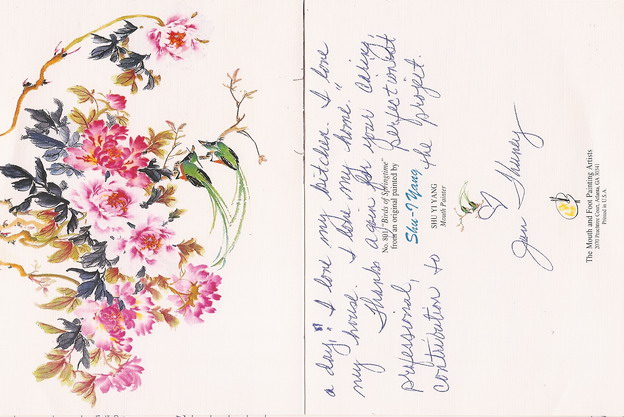 a day! I love my kitchen. I love
my house. I love my home."
Thanks again for your caring,
professional,
contribution to the project.
Jan
No. 801 "Birds of Springtime"
from an original painted by
Shu-Yi Yang
SHU YI YANG
Mouth Painter
The Mouth and Foot Painting Artists
2070 Peachtree Court, Atlanta, GA 30341
Printed in U.S.A.